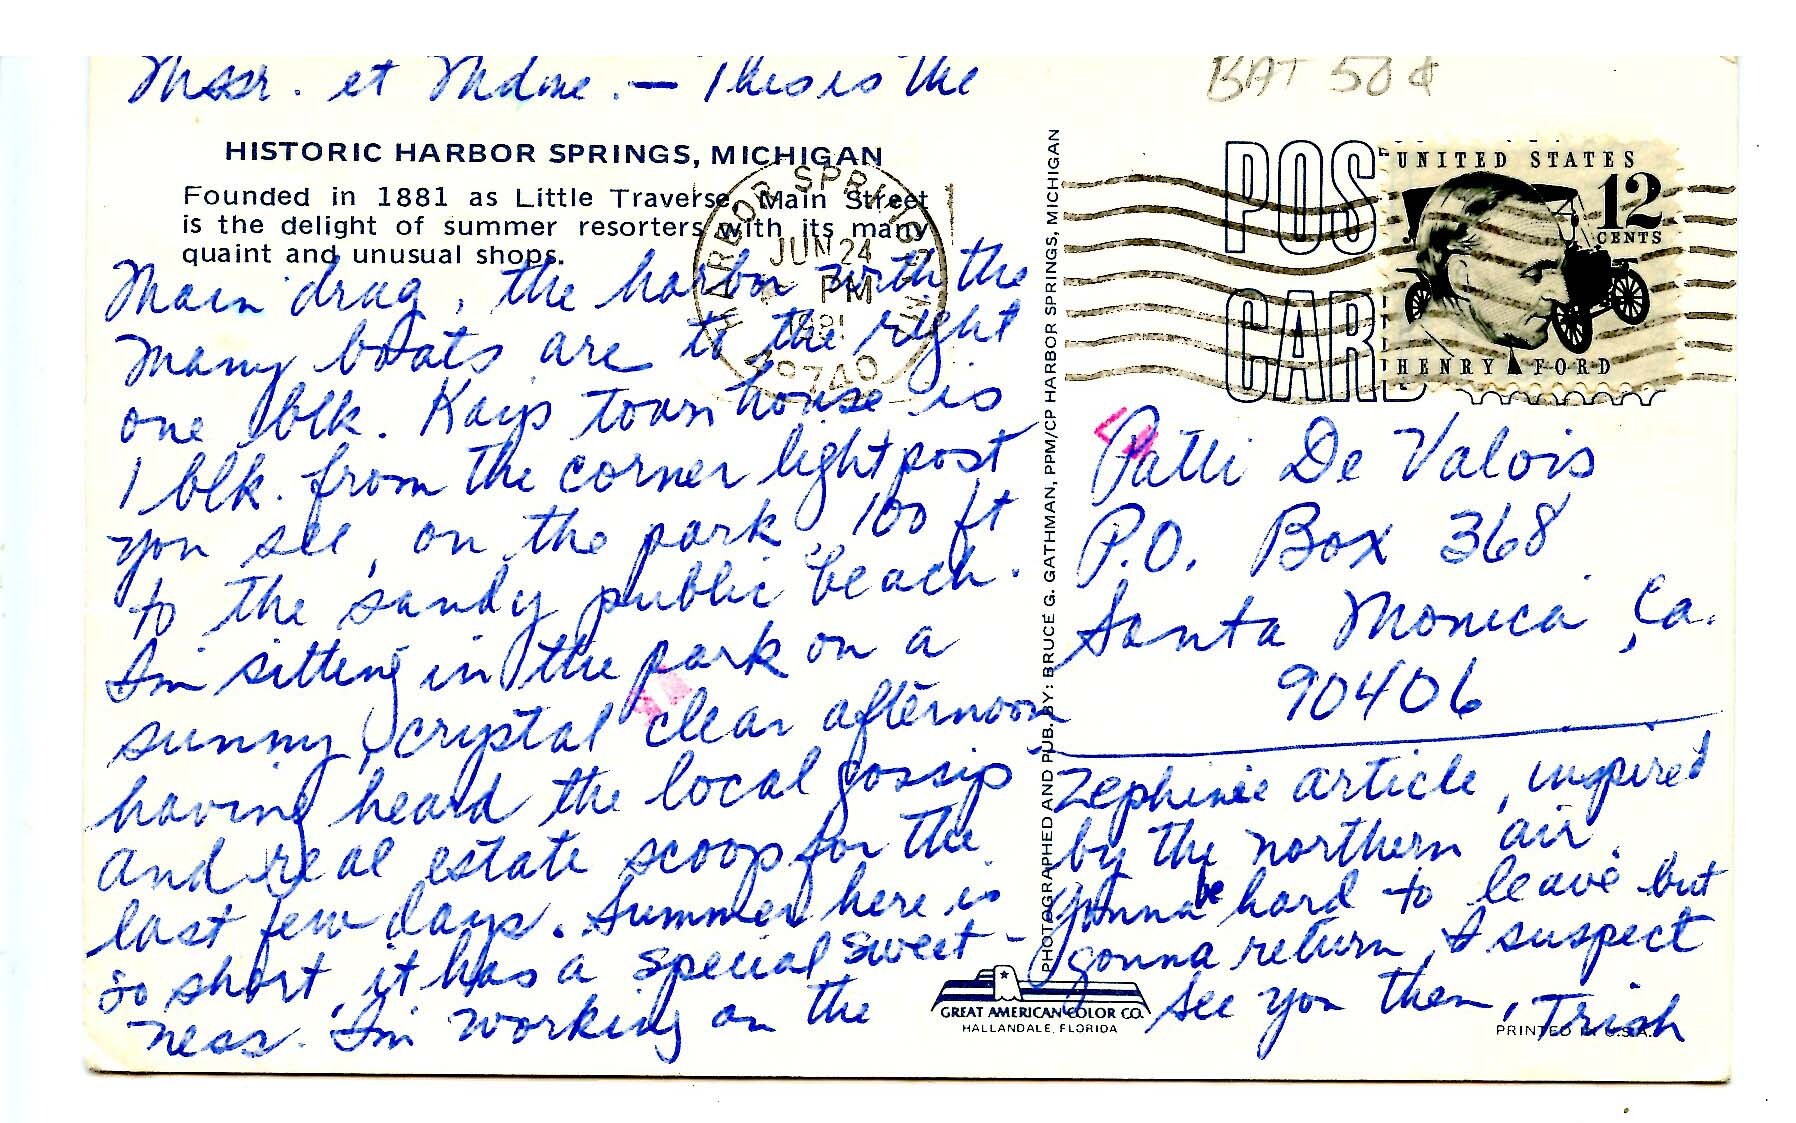 Mssr. et Mdme. — This is the
BAT 50¢
HISTORIC HARBOR SPRINGS, MICHIGAN
Founded in 1881 as Little Traverse, Main Street
is the delight of summer resorters with its many
quaint and unusual shops.
HARBOR SPRINGS MI
JUN 24
PM
1981
49740
Main drag, the harbor with the
many boats are to the right
one blk. Kays town house is
1 blk. from the corner light post
you see, on the park, 100 ft
to the sandy public beach.
I'm sitting in the park on a
sunny, crystal clear afternoon
having heard the local gossip
and real estate scoop for the
last few days. Summer here is
so short, it has a special sweet-
ness. I'm working on the
PHOTOGRAPHED AND PUB. BY: BRUCE G. GATHMAN, PPM/CP HARBOR SPRINGS, MICHIGAN
POST CARD
UNITED STATES
12
CENTS
HENRY FORD
Patti De Valois
P.O. Box 368
Santa Monica, Ca.
90406
Zephinie article, inspired
by the northern air.
Gonna be hard to leave but
gonna return, I suspect
See you then, Trish
GREAT AMERICAN COLOR CO.
HALLANDALE, FLORIDA
PRINTED IN U.S.A.